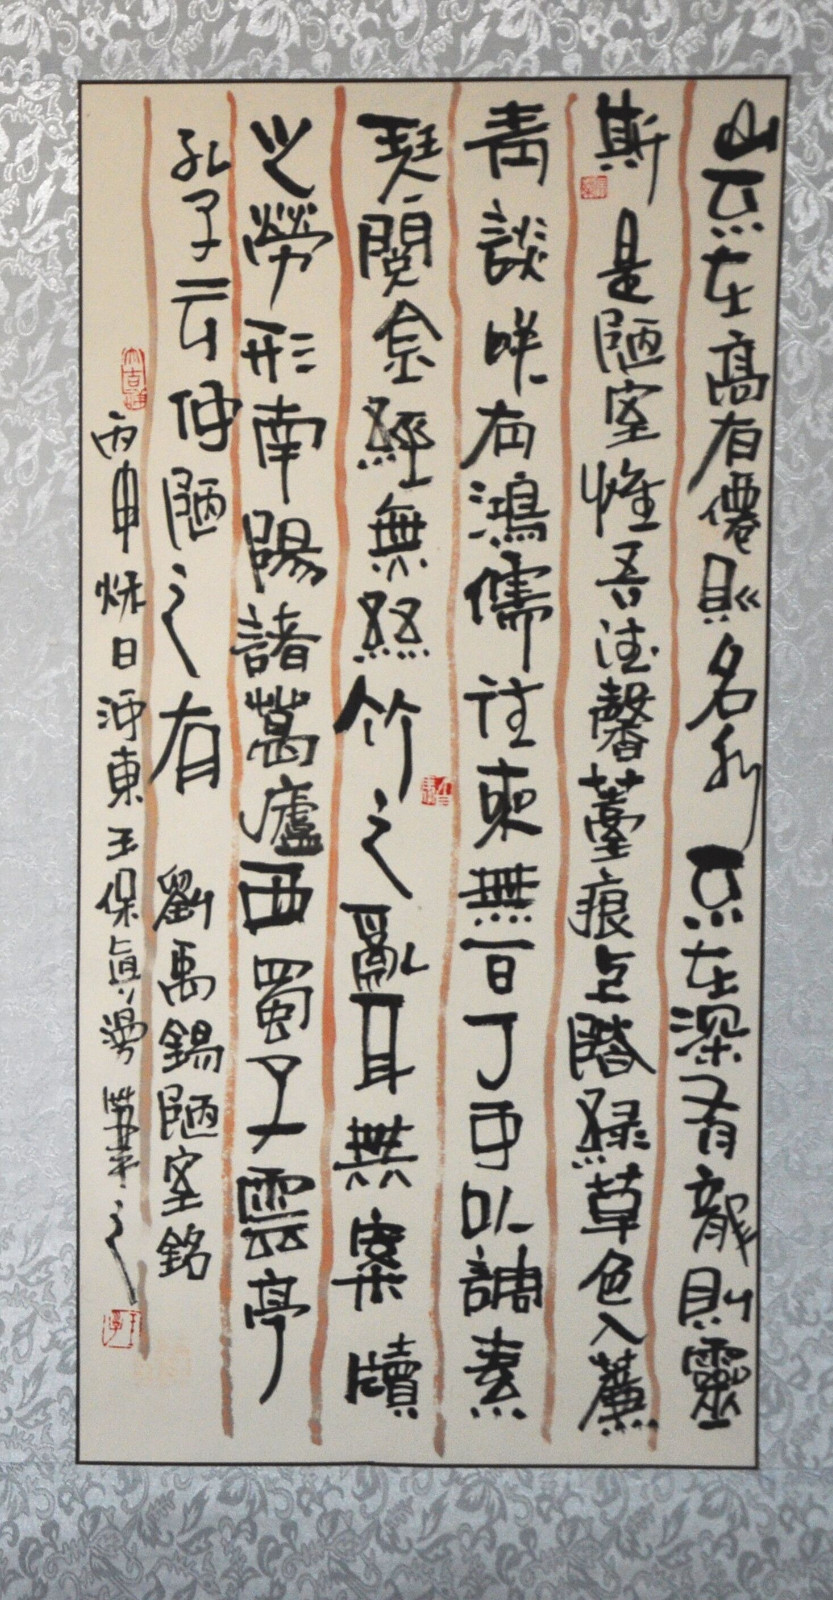 山不在高有僊則名水不在深有龍則靈
斯是陋室惟吾德馨薹痕上階綠草色入簾
青談咲有鴻儒往來無白丁可以調素
琴閱金經無絲竹之亂耳無案牘
之勞形南陽諸葛廬西蜀子雲亭
孔子云何陋之有 劉禹錫陋室銘
丙申秋日河東王保眞